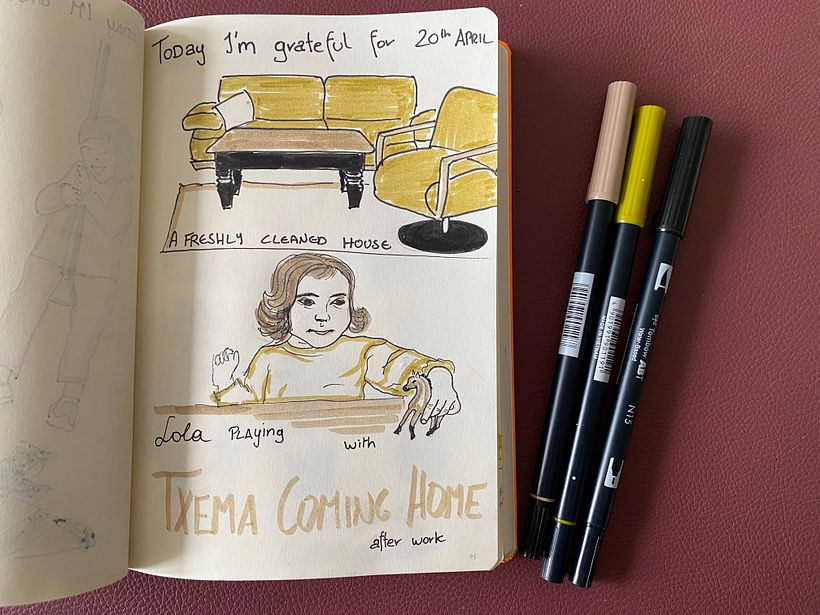 Today I'm grateful for 20th APRIL
A FRESHLY CLEANED HOUSE
Lola PLAYING with
TXEMA COMING HOME
after work
95
MADE IN VIETNAM
Tombow ABT
Water-Based
N15